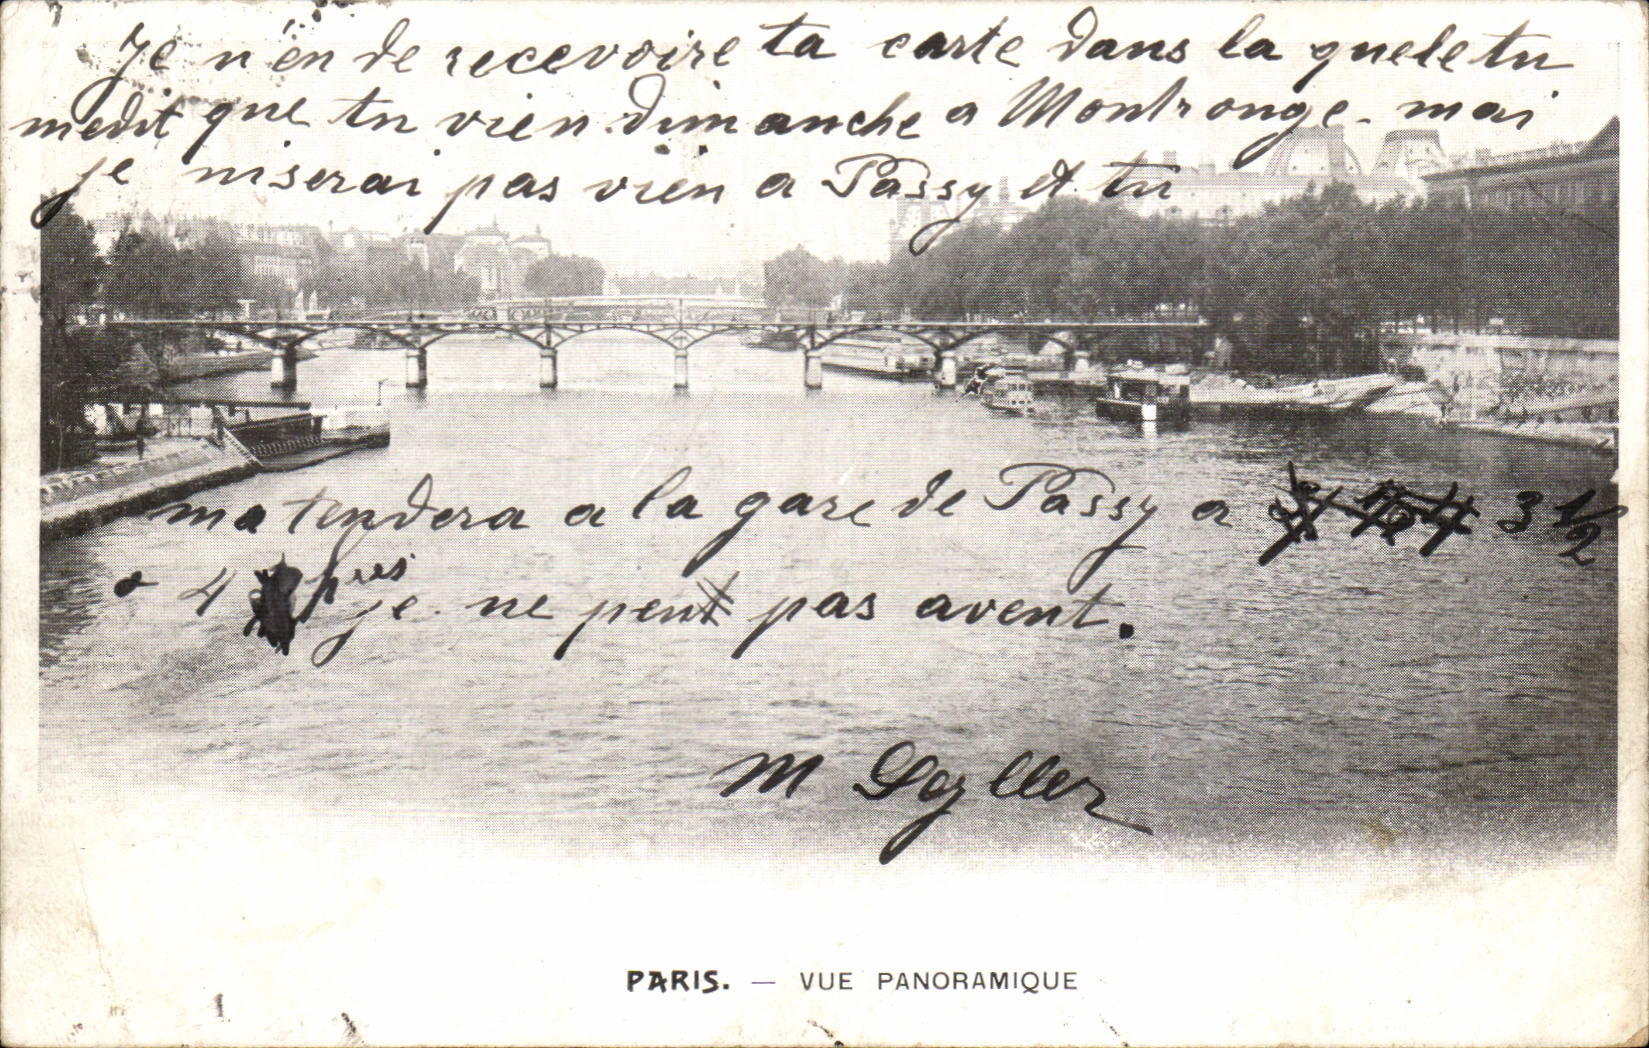 Je n'en de recevoire ta carte dans la quele tu
medit que tu vien dimanche a Montronge. mai
je niserai pas vien a Passy et tu
ma tendera a la gare de Passy a 3 1/2
a 4 hres je ne peut pas avent.
M
PARIS. — VUE PANORAMIQUE